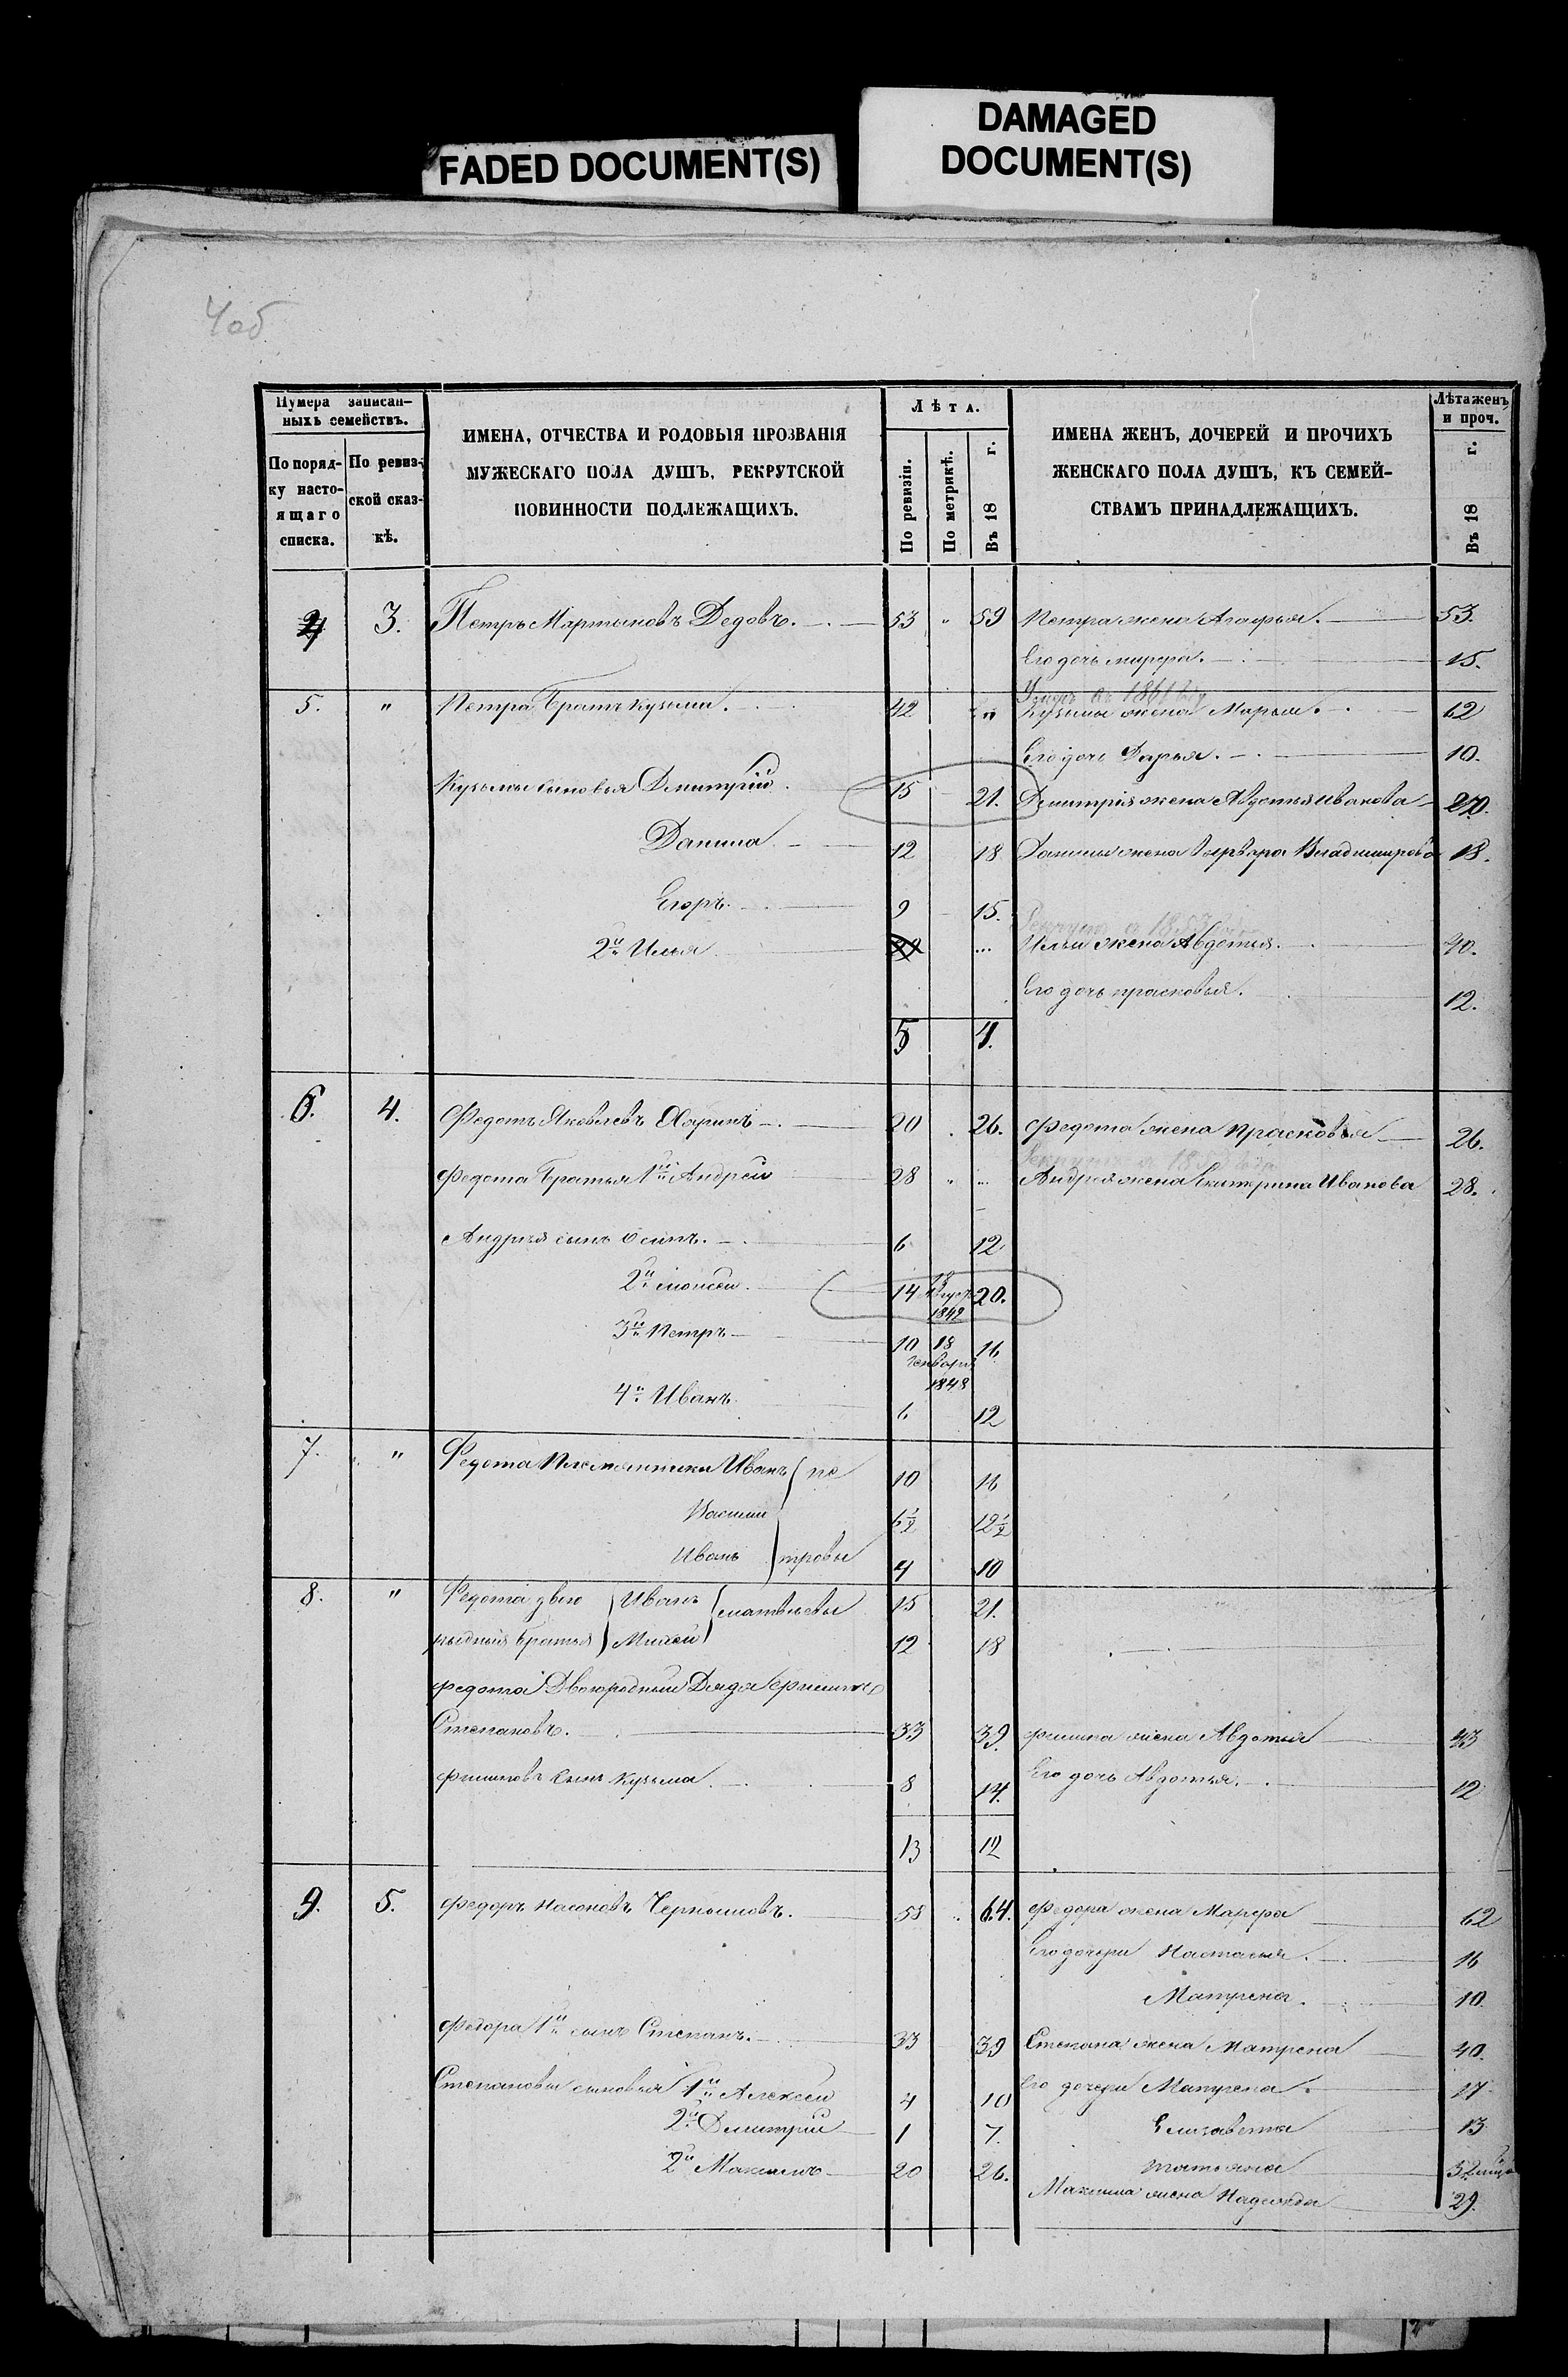 FADED DOCUMENT(S)
DAMAGED
DOCUMENT(S)
4об
Нумера записан-
ныхъ семействъ.
По поряд-
ку насто-
ящаго
списка.
По ревиз-
ской сказ-
кѣ.
ИМЕНА, ОТЧЕСТВА И РОДОВЫЯ ПРОЗВАНІЯ
МУЖЕСКАГО ПОЛА ДУШЪ, РЕКРУТСКОЙ
ПОВИННОСТИ ПОДЛЕЖАЩИХЪ.
Лѣта.
По ревизіи.
По метрикѣ.
Въ 18 г.
ИМЕНА ЖЕНЪ, ДОЧЕРЕЙ И ПРОЧИХЪ
ЖЕНСКАГО ПОЛА ДУШЪ, КЪ СЕМЕЙ-
СТВАМЪ ПРИНАДЛЕЖАЩИХЪ.
Лѣта женъ
и проч.
Въ 18 г.
4 3. Петръ Мартыновъ Дедовъ. 53 " 59 Петра жена Агафья. 53.
Его дочь марфа. 15.
Умеръ въ 1861 году
5. " Петра братъ кузьма. 42 " Кузьмы жена Марья. 62
Его дочь Дарья. 10.
Кузьмы сыновья Дмитрій. 15 21. Дмитрія жена Авдотья иванова 20.
Данила 12 18 Данилы жена варвара Владимирова 18.
Егоръ. 9 15.
Рекрутъ в 1853 году
2й Илья ... Ильи жена Авдотья. 40.
Его дочь прасковья. 12.
5 4.
6. 4. Федотъ Яковлевъ 20 26. федота жена прасковья 26.
Рекрутъ в 1853 году
федота братья 1й Андрей 28 " ... Андрея жена Екатерина Иванова 28.
Андрея сынъ осипъ. 6 12
2й моисеи 14 август 1842 20.
3й Петръ 10 18 генваря 1848 16
4й Иванъ 6 12
7. " Федота Племянники Иванъ пе 10 16
Василий 6½ 12½
Иванъ тровы 4 10
8. " Федота двою Иванъ матвѣевы 15 21.
родныя братья Михей 12 18
федота Двоюродный Дядя
Степановъ. 33 39 жена Авдотья 43
сынъ кузьма. 8 14. Его дочь Авдотья. 12
13 12
9. 5. федоръ насоновъ 58 64. федора жена Марфа 62
Его дочери Настасья. 16
Матрена. 10.
Федора 1й сынъ Степанъ. 33 39 Степана жена Матрена 40.
Степановы сыновья 1й Алексеи 4 10 Его дочери Матрена. 17
2й Дмитрии 1 7. Елизавета 13
2й Максимъ 20 26. татьяна
Максима жена Надежда 29.